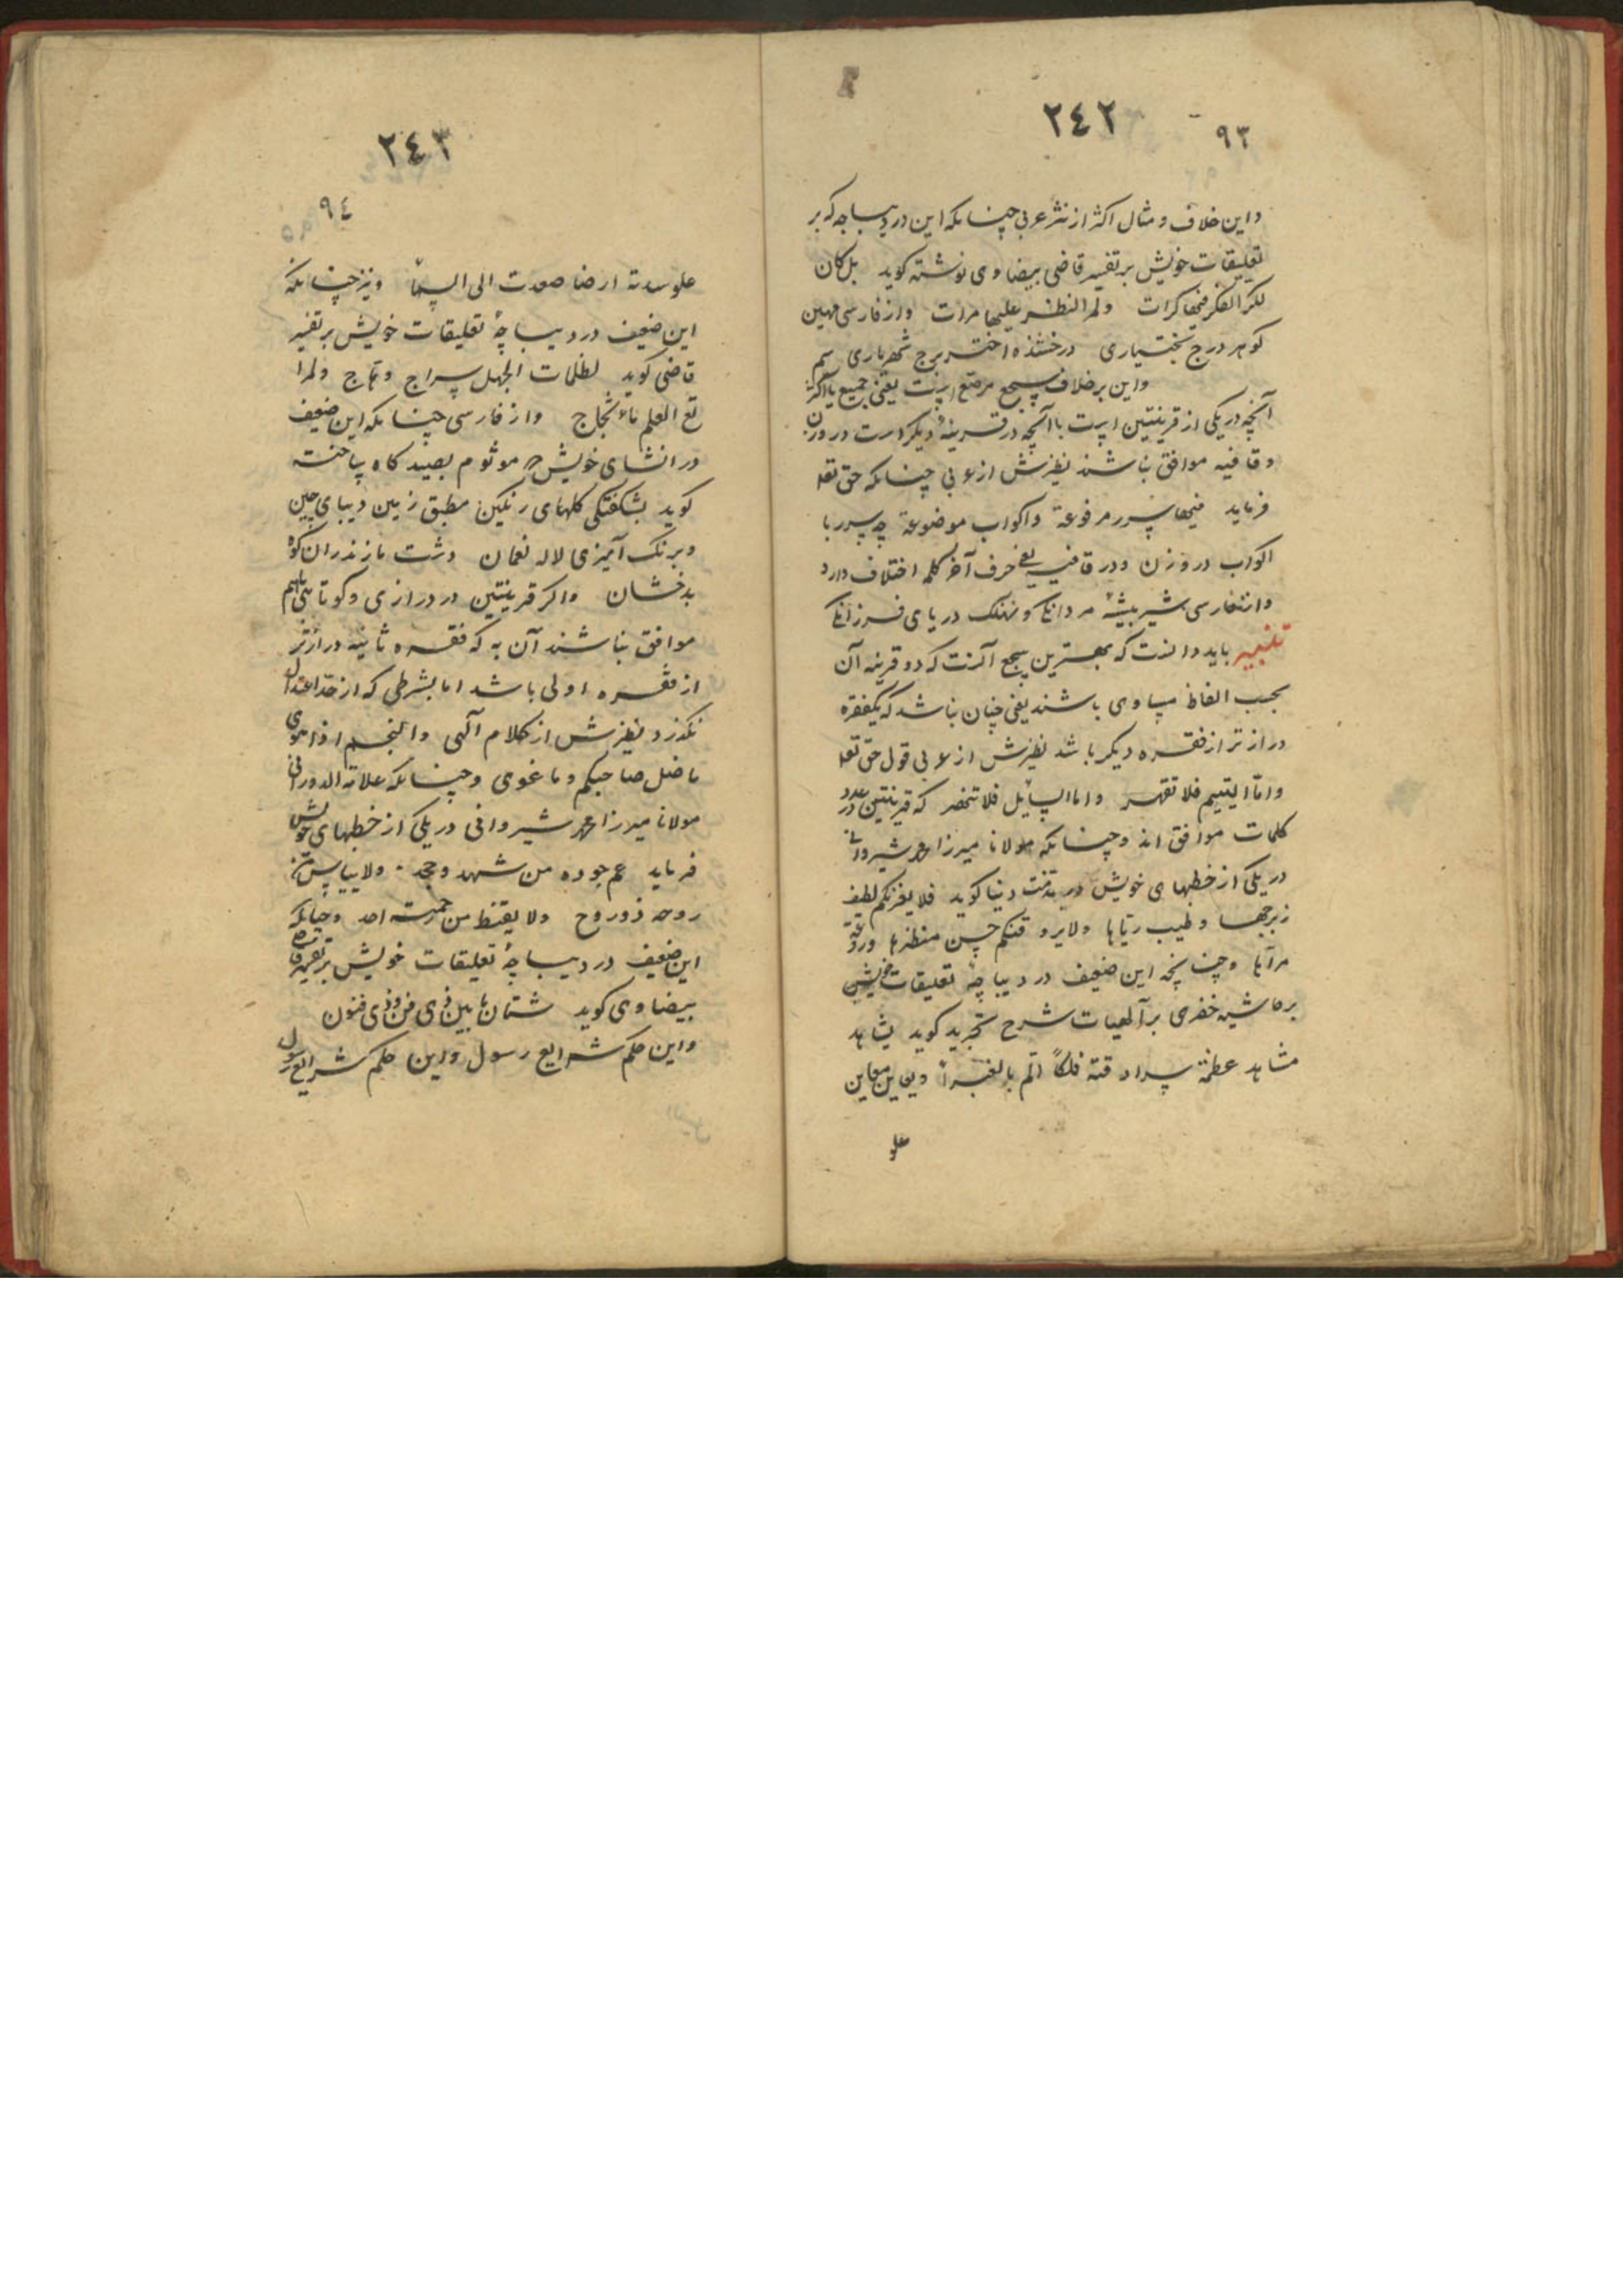 ٢٤٢
٩٣
و این خلاف و مثال اکثر از نثر عربی چنانکه این در دیباجه که بر
تعلیقات خویش بر تفسیر قاضی بیضاوی نوشته کوید بل کان
لکر الفکر فیها کرات ولمر النظر علیها مرات و از فارسی مهین
کوهر درج بختیاری درخشنده اختر برج شهریاری سیم
و این بر خلاف سجع مرصع است یعنی جمیع یا اکثر
آنچه در یکی از قرینتین است با آنچه در قرینهٔ دیکر است در وزن
و قافیه موافق نباشند نظیرش از عربی چنانکه حق تعه
فرماید فیها سرر مرفوعة و اکواب موضوعة چه سرر با
اکواب در وزن و در قافیه یعنی حرف آخر کلمه اختلاف دارد
و از فارسی شیر بیشهٔ مردانکی و نهنک دریای فرزانکی
تنبیه باید دانست که بهترین سجع آنست که دو قرینه آن
بحسب الفاظ مساوی باشند یعنی چنان نباشد که یکفقره
درازتر از فقره دیکر باشد نظیرش از عربی قول حق تعه
و اما الیتیم فلا تقهر و اما السائل فلا تنهر که قرینتین در عدد
کلمات موافق اند و چنانکه مولانا میرزا محمد شیروانی
در یکی از خطبهای خویش در مذمت دنیا کوید فلا یغرنکم لطیف
زبرجها و طیب ریاها ولا یروقنکم حسن منظرها و روعة
مرآها و چنانچه این ضعیف در دیباچهٔ تعلیقات خویش
بر حاشیه خفری بر آلهیات شرح تجرید کوید یشاهد
مشاهد عظمة سرادقته فلکاً الم بالغبرا و یعاین معاین
علو
٢٤٣
٩٤
علو سدته ارضا صعدت الی السما و نیز چنانکه
این ضعیف در دیباچهٔ تعلیقات خویش بر تفسیر
قاضی کوید لظلمات الجهل سراج وهاج ولمرا
تع العلم ماء ثجاج و از فارسی چنانکه این ضعیف
در انشای خویش که موسوم بصیدکاه ساخته
کوید بشکفتکی کلهای رنکین مطبق زمین دیبای چین
و برنک آمیزی لاله نعمان دشت مازندران کوه
بدخشان و اکر قرینتین در درازی و کوتاهی با هم
موافق نباشند آن به که فقره ثانیه درازتر
از فقره اولی باشد اما بشرطی که از حد اعتدال
نکذرد نظیرش از کلام آلهی و النجم اذا هوی
ما ضل صاحبکم و ما غوی و چنانکه علامة الدورانی
مولانا میرزا محمد شیروانی در یکی از خطبهای خویش
فرماید عم جوده من شهد و جحد ولا ییاس من
روحه ذو روح ولا یقنط من رحمته احد و چنانکه
این ضعیف در دیباچهٔ تعلیقات خویش بر تفسیر قاضی
بیضاوی کوید شتان ما بین ذی فن و ذی فنون
و این حکم شرایع رسول و این حکم شرایع رسول